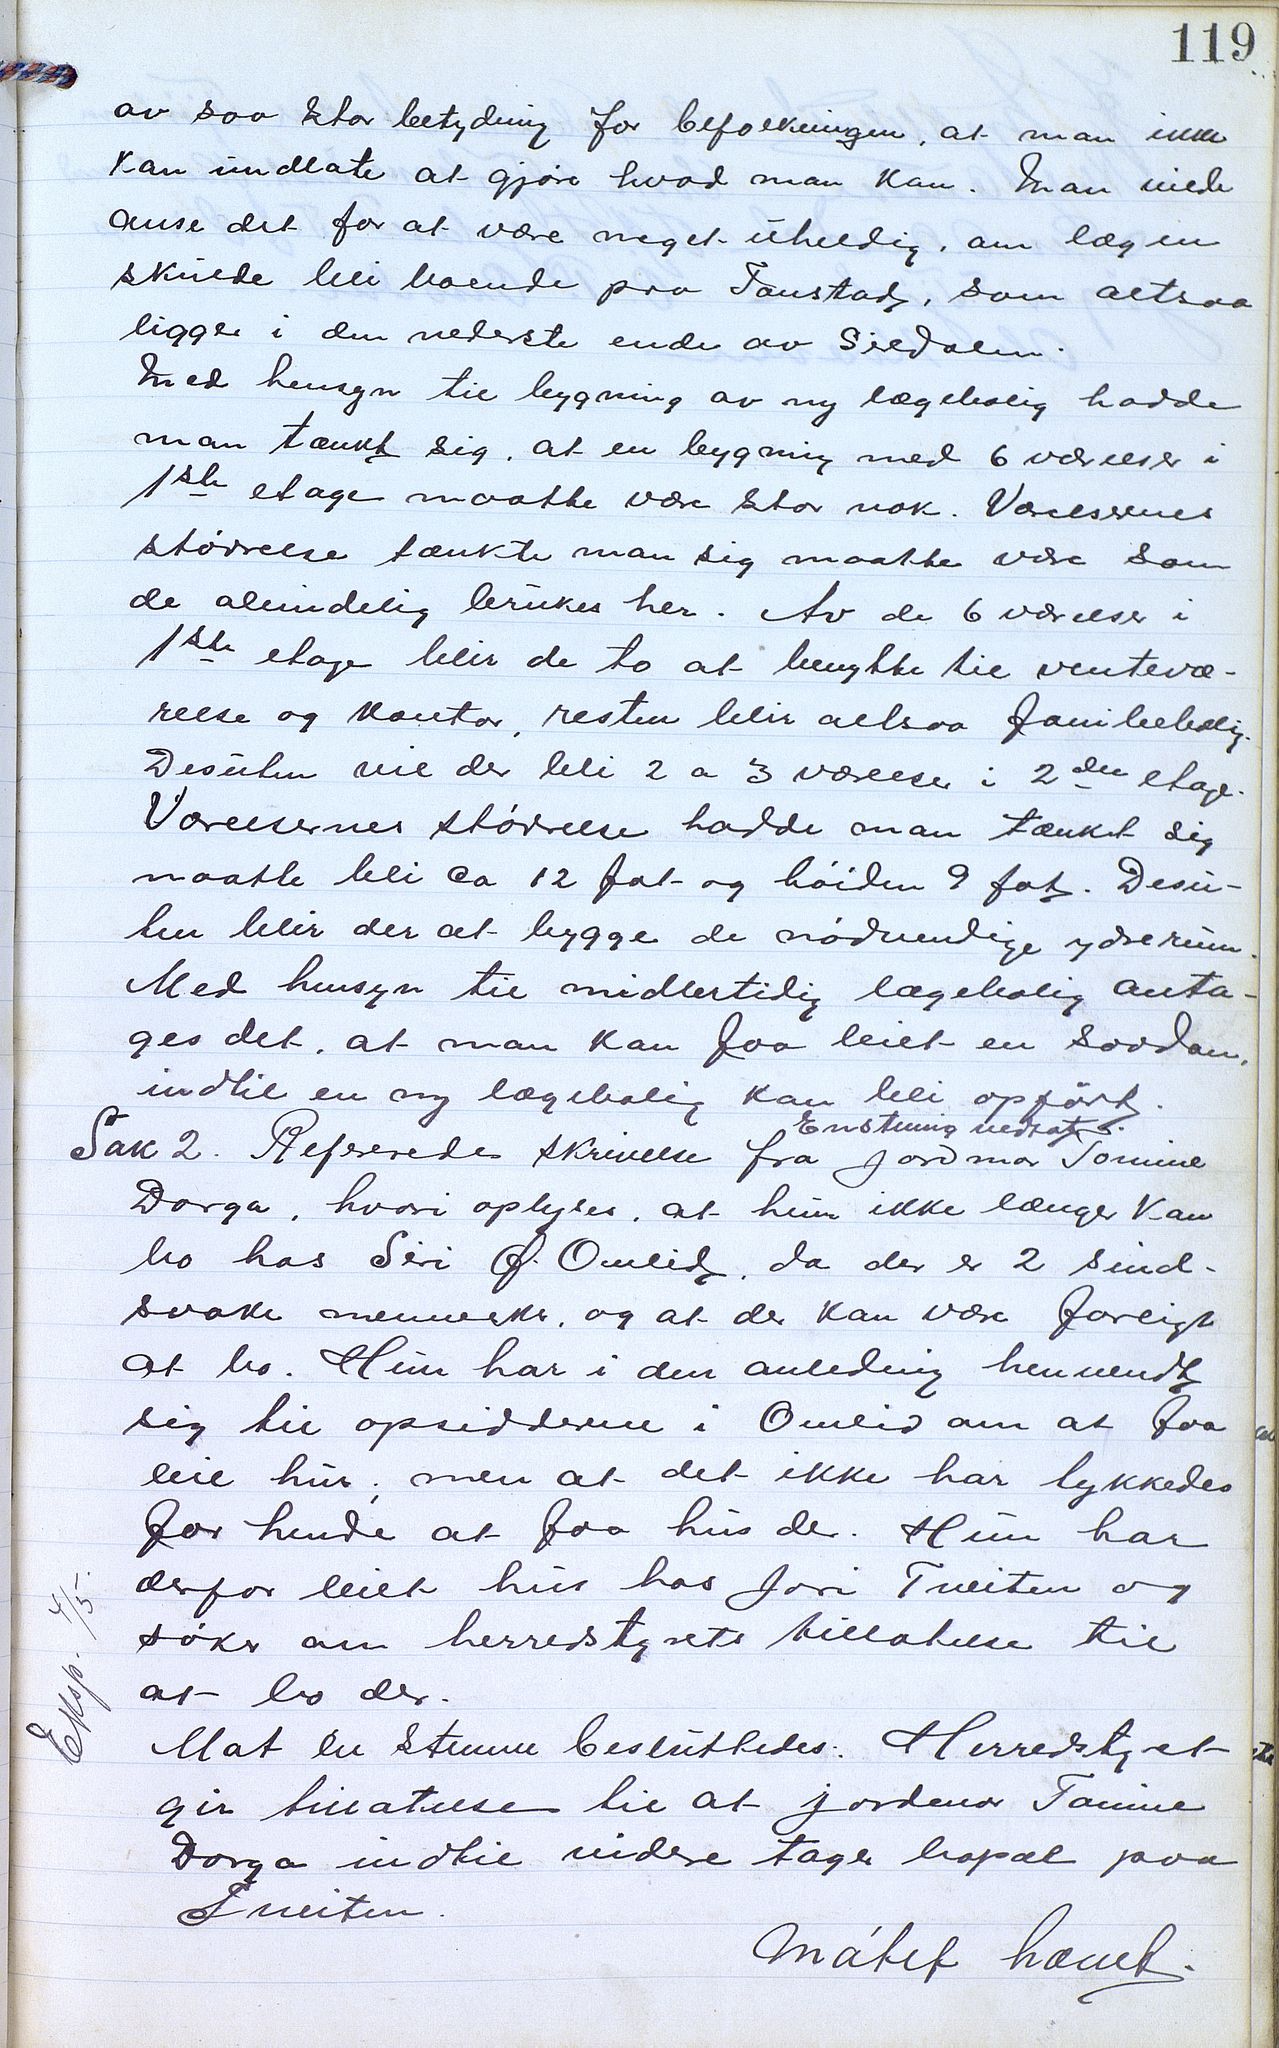 119
av saa stor betydning for befolkningen, at man ikke
kan undlate at gjøre hvad man kan. Man vilde
anse det for at være meget uheldig, om lægen
skulde bli boende paa Tonstad, som altsaa
ligger i den nederste ende av Siredalen.
Med hensyn til bygning av ny lægebolig hadde
man tænkt sig, at en bygning med 6 værelser i
1ste etage maatte være stor nok. Værelsernes
størrelse tænkte man sig maatte være som
de almindelig brukes her. Av de 6 værelser i
1ste etage blir de to at benytte til ventevæ-
relse og kontor, resten blir altsaa familiebolig.
Desuten vil der bli 2 a 3 værelser i 2den etage.
Værelsernes størrelse hadde man tænkt sig
maatte bli ca 12 fot og høiden 9 fot. Desu-
ten blir der at bygge de nødvendige ydre rum.
Med hensyn til midlertidig lægebolig anta-
ges det, at man kan faa leiet en saadan,
indtil en ny lægebolig kan bli opført.
Enstemmig vedtat.
Sak 2. Refereredes skrivelse fra jordmor Tomine
Dorga, hvori oplyses, at hun ikke længer kan
bo hos Siri O. Omlid, da der er 2 sind-
svake mennesker, og at der kan være farligt
at bo. Hun har i den anledning henvendt
sig til opsidderne i Omlid om at faa
leie hus, men at det ikke har lykkedes
for hende at faa hus der. Hun har
derfor leiet hus hos Jori Tveiten og
søker om herredstyrets tillatelse til
at bo der.
Eksp. 4/5.
Mot en stemme besluttedes: Herredstyret
gir tillatelse til at jordmor Tomine
Dorga indtil videre tager bopæl paa
Tveiten.
Møtet hævet.